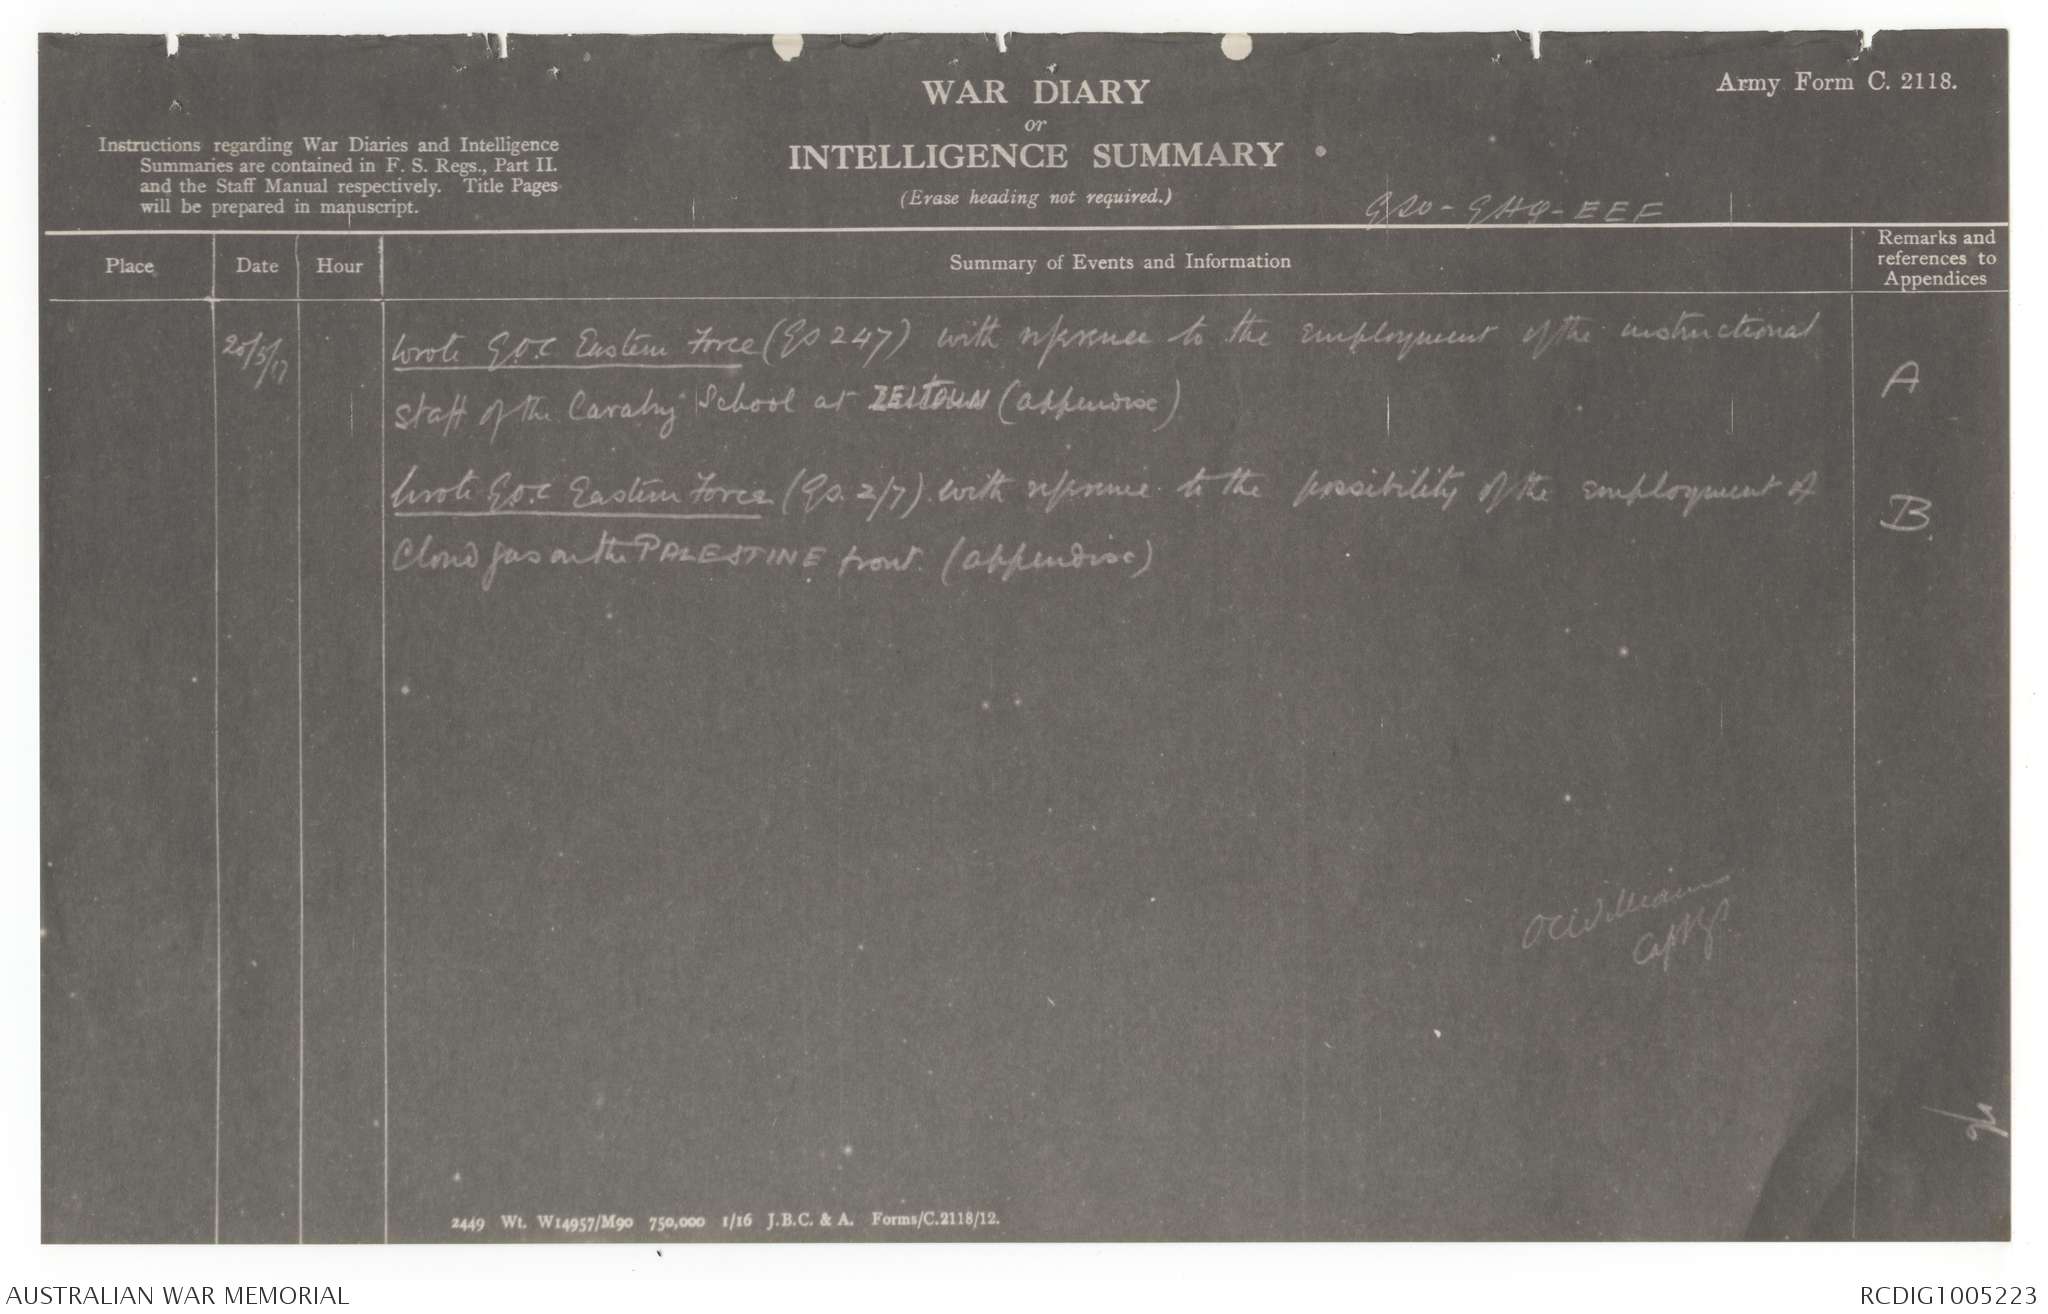 Army Form C. 2118.
WAR DIARY
or
INTELLIGENCE SUMMARY
(Erase heading not required.)
Instructions regarding War Diaries and Intelligence
Summaries are contained in F. S. Regs., Part II.
and the Staff Manual respectively. Title Pages
will be prepared in manuscript.
GSO - GHQ - EEF
Place
Date
Hour
Summary of Events and Information
Remarks and
references to
Appendices
20/5/17
Wrote G.O.C Eastern Force (GS 247) with reference to the employment of the instructional
staff of the Cavalry School at ZEITOUN (appendix)
A
Wrote G.O.C Eastern Force (GS. 2/7) with reference to the possibility of the employment of
Cloud gas on the PALESTINE front. (appendix)
B
OC Williams
Capt
2449 Wt. W14957/M90 750,000 1/16 J.B.C. & A. Forms/C.2118/12.
AUSTRALIAN WAR MEMORIAL
RCDIG1005223